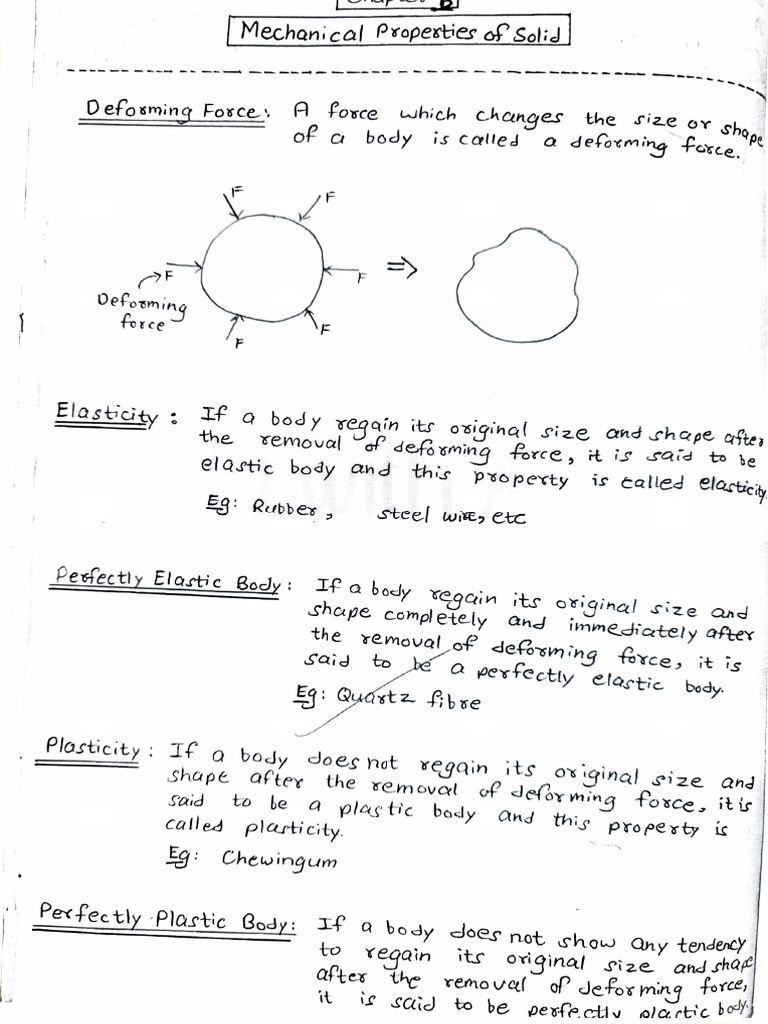 Chapter
Mechanical Properties of Solid
Deforming Force: A force which changes the size or shape
of a body is called a deforming force.
F
F
F
F
F
F
⇒
Deforming
force
Elasticity: If a body regain its original size and shape after
the removal of deforming force, it is said to be
elastic body and this property is called elasticity
Eg: Rubber, steel wire, etc
Perfectly Elastic Body: If a body regain its original size and
shape completely and immediately after
the removal of deforming force, it is
said to be a perfectly elastic body.
Eg: Quartz fibre
Plasticity: If a body does not regain its original size and
shape after the removal of deforming force, it is
said to be a plastic body and this property is
called plasticity.
Eg: Chewingum
Perfectly Plastic Body: If a body does not show any tendency
to regain its original size and shape
after the removal of deforming force,
it is said to be perfectly plastic body.